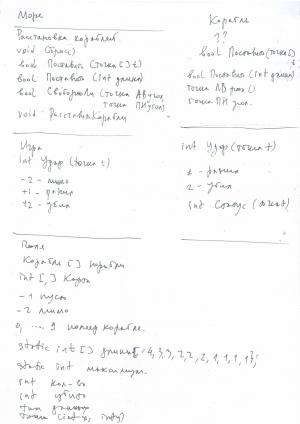 Море
Расстановка кораблей
void Сброс()
bool Поставить (точка [] t)
bool Поставить (int длина)
bool Свободно ли (точка ЛВ
точка ПН
void Расставить Корабли
Игра
int Удар (точка t)
-2 - мимо
+1 - ранил
+2 - убил
Поля
Корабль [] корабли
int [,] Карта
-1 пусто
-2 мимо
0, ... 9 номер корабля.
static int [] длины = 4, 3, 3, 2, 2, 2, 1, 1, 1, 1};
static int
int кол-во
int убито
точка (int x, int y)
Корабль
??
bool Поставить (точка [])
bool Поставить (int длина)
точка ЛВ ()
точка ПН
int Удар (точка t)
1 - ранил
2 - убил
int Статус (точка t)